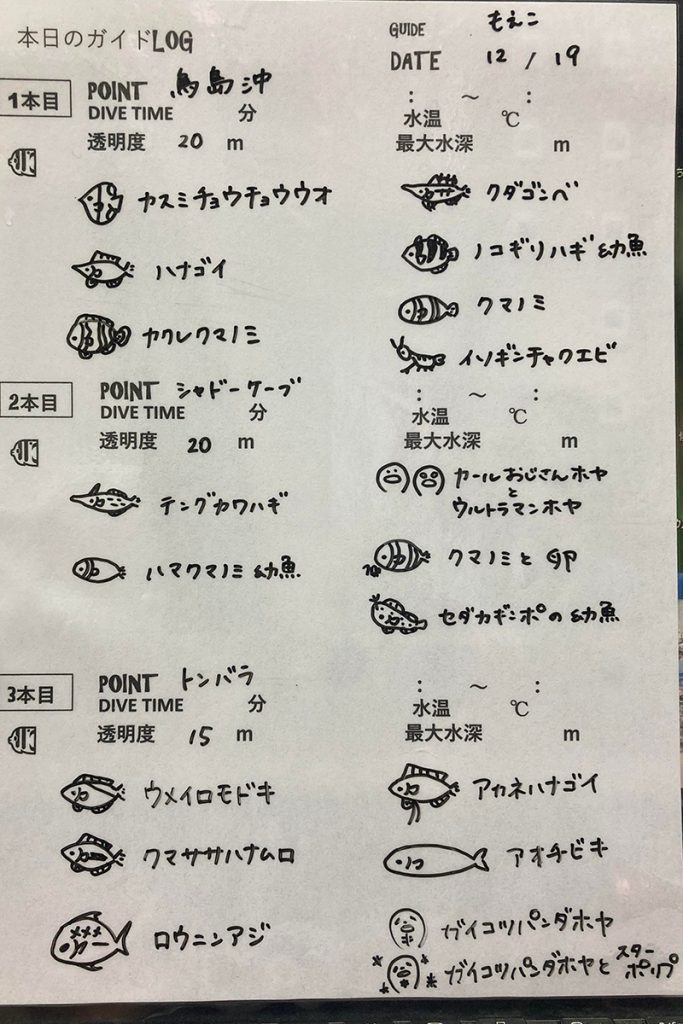 本日のガイドLOG
GUIDE もえこ
DATE 12 / 19
1本目
POINT 鳥島沖
DIVE TIME 分
: ～ :
水温 ℃
透明度 20 m
最大水深 m
カスミチョウチョウウオ
ハナゴイ
カクレクマノミ
クダゴンベ
ノコギリハギ幼魚
クマノミ
イソギンチャクエビ
2本目
POINT シャドーケーブ
DIVE TIME 分
: ～ :
水温 ℃
透明度 20 m
最大水深 m
テングカワハギ
ハマクマノミ幼魚
カールおじさんホヤ
と
ウルトラマンホヤ
クマノミと卵
セダカギンポの幼魚
3本目
POINT トンバラ
DIVE TIME 分
: ～ :
水温 ℃
透明度 15 m
最大水深 m
ウメイロモドキ
クマササハナムロ
ロウニンアジ
アカネハナゴイ
アオチビキ
ガイコツパンダホヤ
ガイコツパンダホヤとスターポリプ